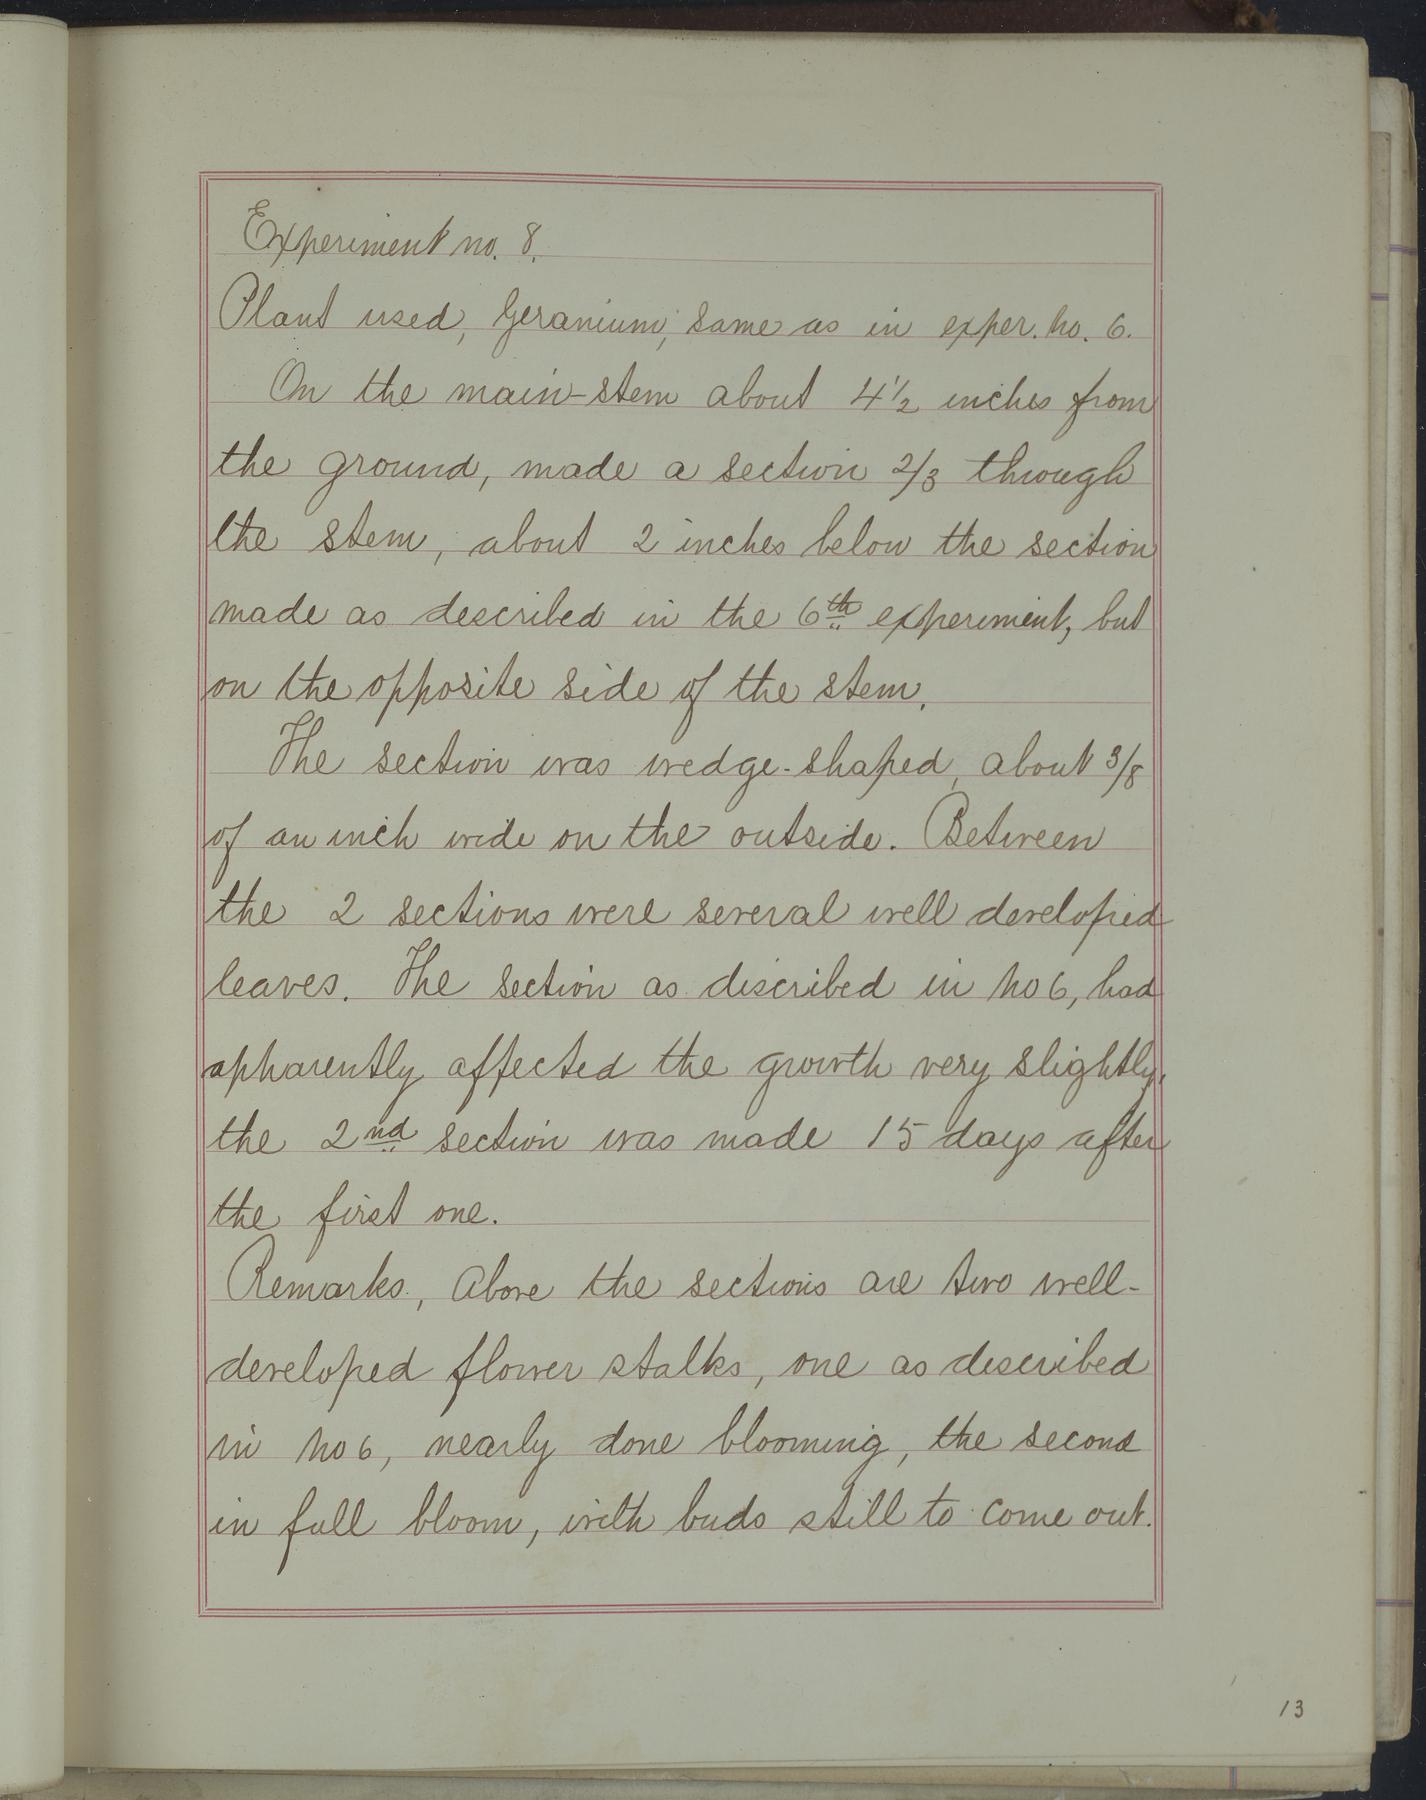 Experiment no. 8.
Plant used, Geranium, same as in exper. no. 6.
On the main-stem about 4 1/2 inches from
the ground, made a section 2/3 through
the stem, about 2 inches below the section
made as described in the 6th experiment, but
on the opposite side of the stem.
The section was wedge-shaped, about 3/8
of an inch wide on the outside. Between
the 2 sections were several well developed
leaves. The section as discribed in no 6, had
apparently affected the growth very slightly,
the 2nd section was made 15 days after
the first one.
Remarks, Above the sections are two well-
developed flower stalks, one as described
in no 6, nearly done blooming, the second
in full bloom, with buds still to come out.
13